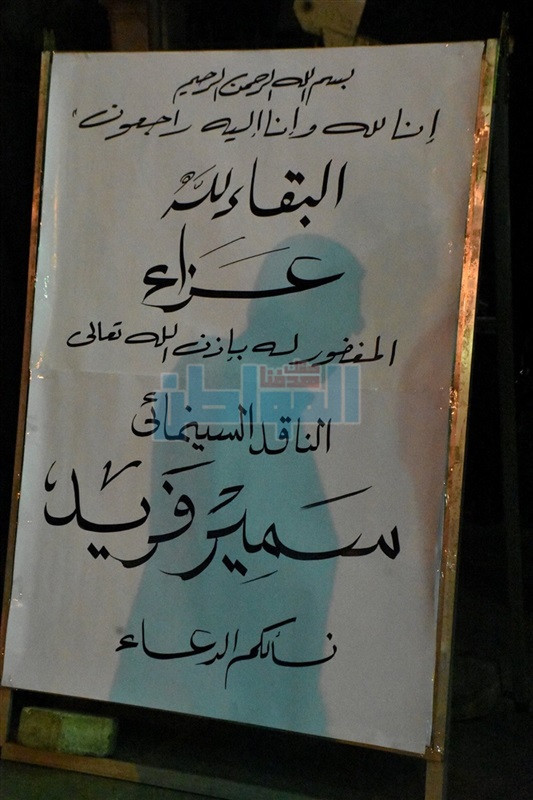 بسم الله الرحمن الرحيم
إنا لله وإنا إليه راجعون
البقاء لله
عزاء
المغفور له بإذن الله تعالى
المواطن
الناقد السينمائى
سمير فريد
نسألكم الدعاء